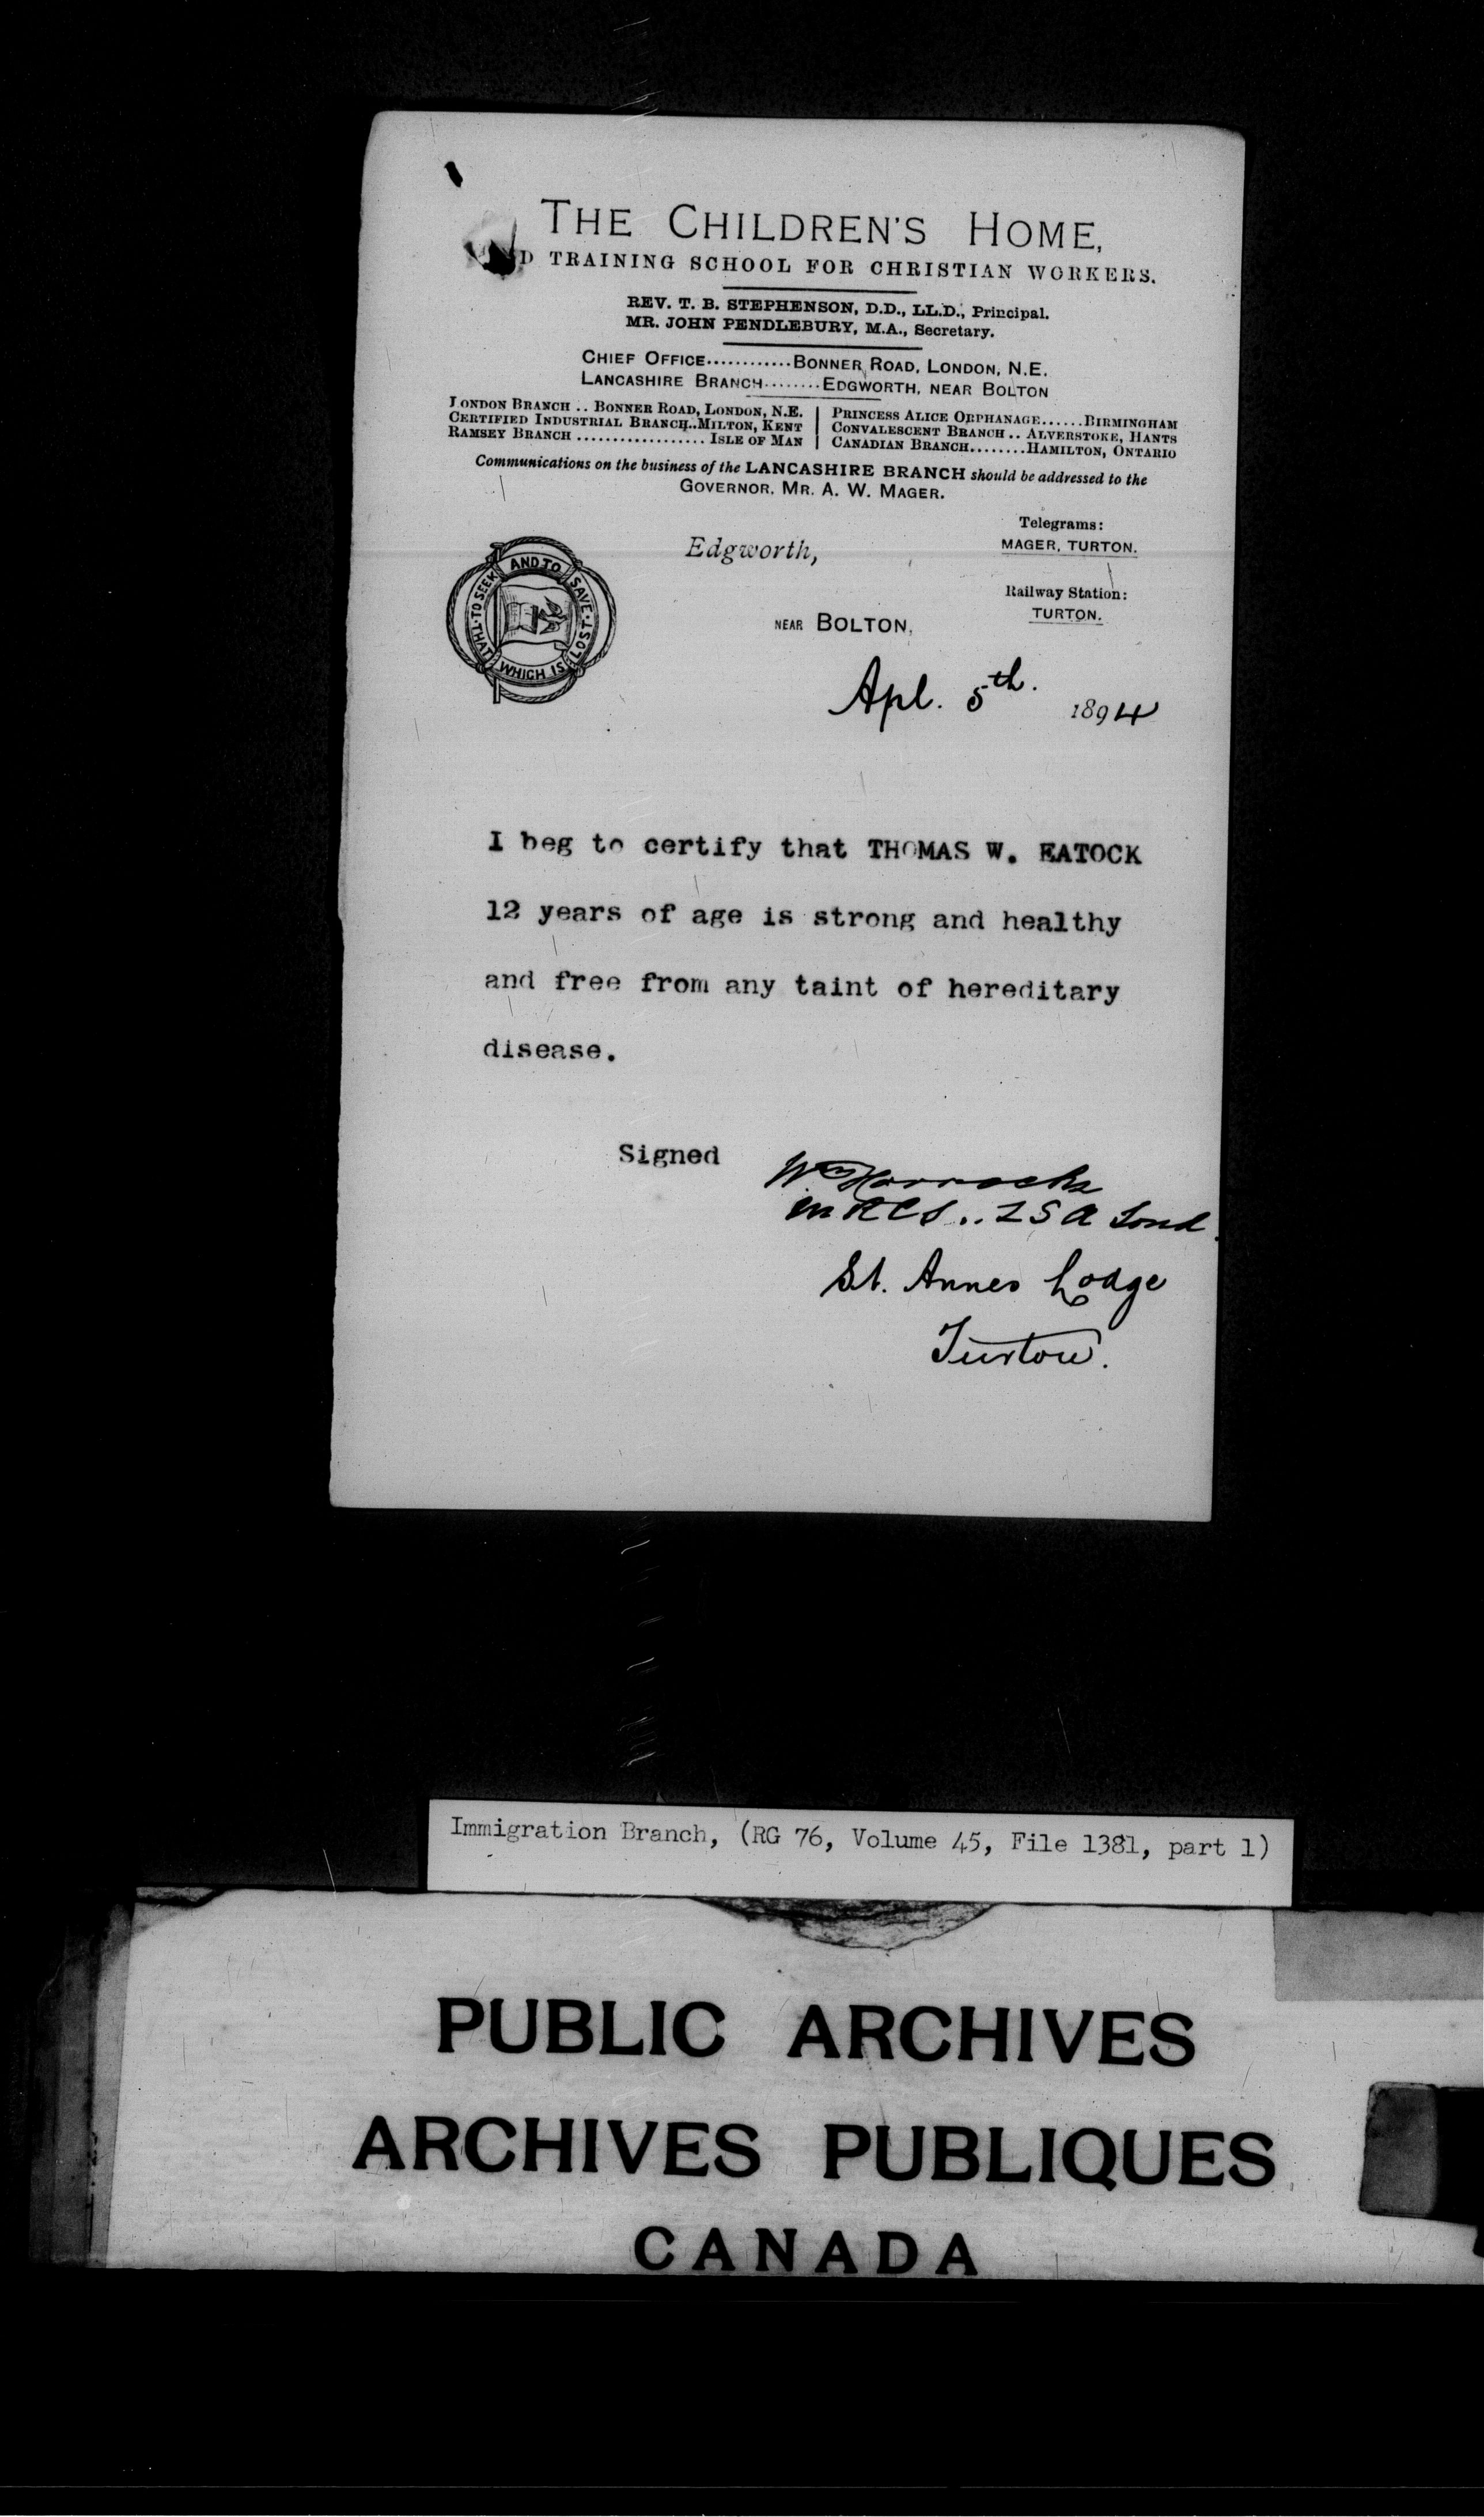 THE CHILDREN'S HOME,
AND TRAINING SCHOOL FOR CHRISTIAN WORKERS.
REV. T. B. STEPHENSON, D.D., LL.D., Principal.
MR. JOHN PENDLEBURY, M.A., Secretary.
CHIEF OFFICE............BONNER ROAD, LONDON, N.E.
LANCASHIRE BRANCH........EDGWORTH, NEAR BOLTON
LONDON BRANCH .. BONNER ROAD, LONDON, N.E.
CERTIFIED INDUSTRIAL BRANCH..MILTON, KENT
RAMSEY BRANCH .................. ISLE OF MAN
PRINCESS ALICE ORPHANAGE......BIRMINGHAM
CONVALESCENT BRANCH .. ALVERSTOKE, HANTS
CANADIAN BRANCH........HAMILTON, ONTARIO
Communications on the business of the LANCASHIRE BRANCH should be addressed to the
GOVERNOR, MR. A. W. MAGER.
Telegrams:
MAGER, TURTON.
Railway Station:
TURTON.
TO SEEK AND TO SAVE THAT WHICH IS LOST
Edgworth,
NEAR BOLTON,
Apl. 5th. 1894
I beg to certify that THOMAS W. EATOCK
12 years of age is strong and healthy
and free from any taint of hereditary
disease.
Signed
Wm Horrocks
MRCS.. LSA Lond.
St. Annes Lodge
Turton.
Immigration Branch, (RG 76, Volume 45, File 1381, part 1)
PUBLIC ARCHIVES
ARCHIVES PUBLIQUES
CANADA